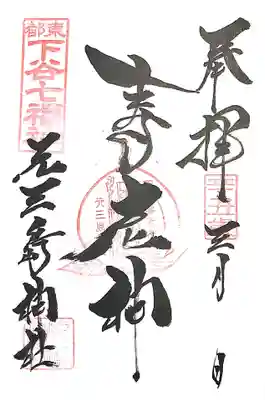 奉拝 三月 日
寿老神
東都
下谷七福神
元三島神社